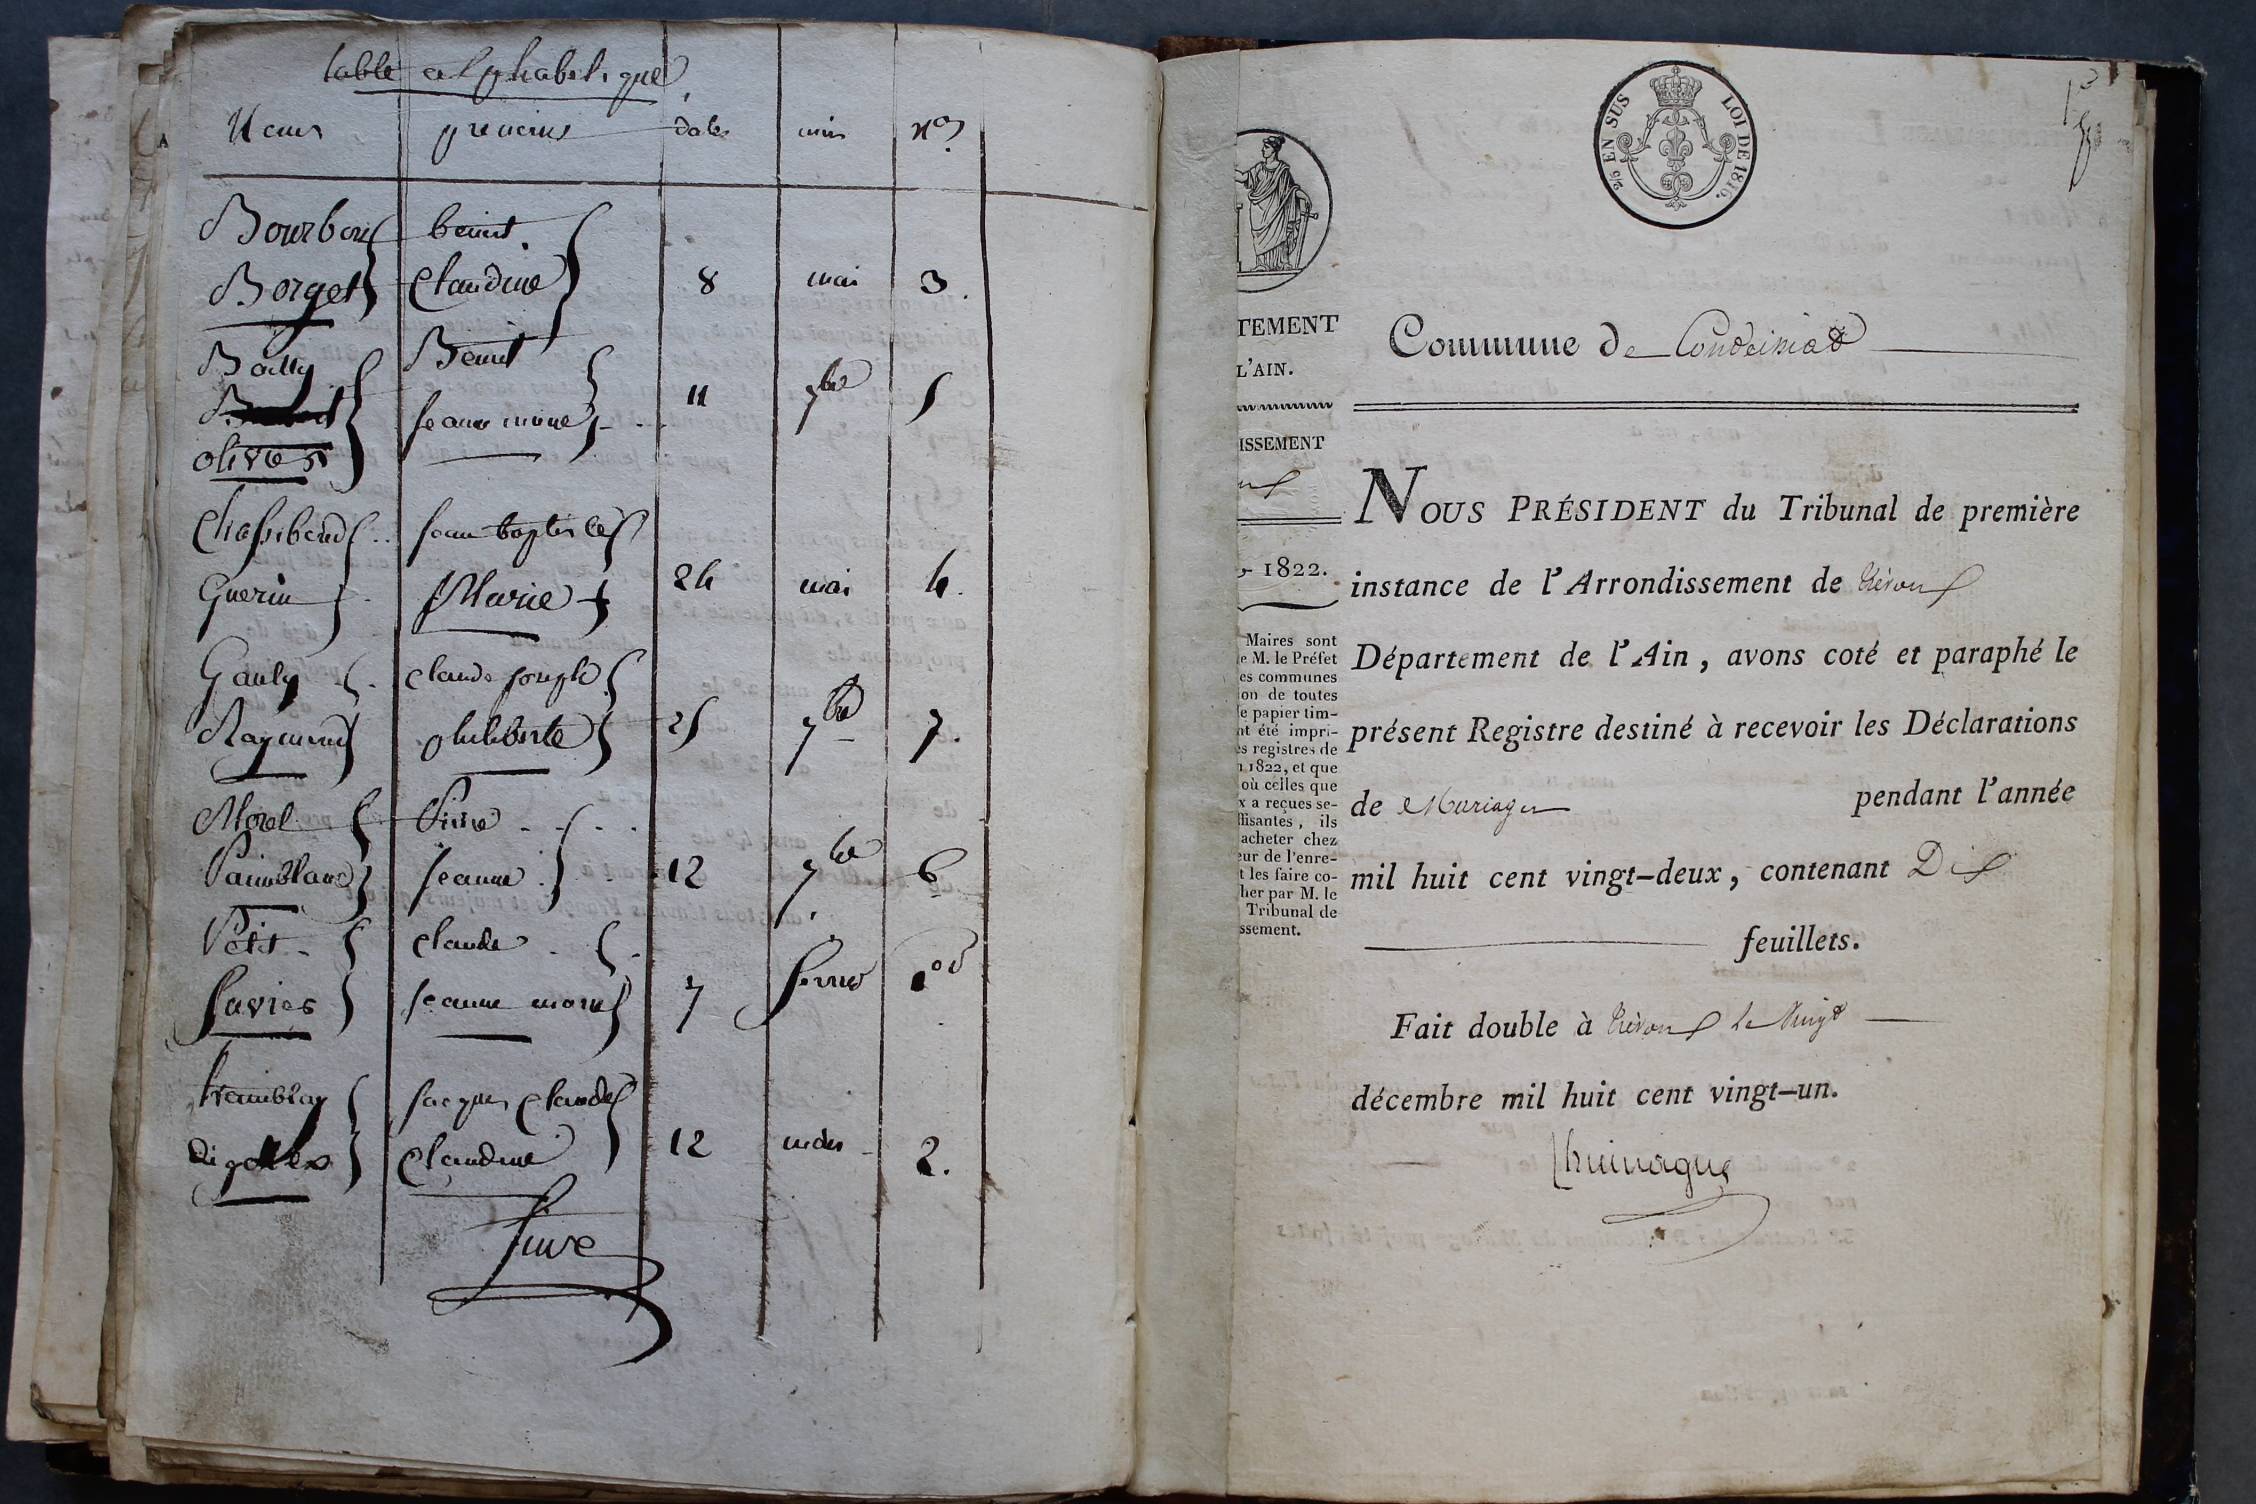 table alphabetique
Noms prenoms dates mois nos
Bourbon benoit
Borget Claudine 8 mai 3.
Bailly Benoit
Jeanne marie 11 7bre 5
olivier
Chassibaud Jean baptiste
Guerin Marie 24 mai 4.
Gauly claude joseph
Raymond philiberte 25 7bre 7.
Morel Pierre
Painblanc Jeanne 12 7bre 6
Petit claude
Savies Jeanne marie 7 fevrier 1er
tremblay Jacques Claude
Claudine 12 mars 2.
2/5 EN SUS
LOI DE 1816.
TEMENT
L'AIN.
ISSEMENT
1822.
Maires sont
e M. le Préfet
es communes
on de toutes
e papier tim-
nt été impri-
es registres de
1822, et que
où celles que
x a reçues se-
ffisantes, ils
acheter chez
eur de l'enre-
t les faire co-
her par M. le
Tribunal de
ssement.
Commune de Condeissiat
NOUS PRÉSIDENT du Tribunal de première
instance de l'Arrondissement de Trévoux
Département de l'Ain, avons coté et paraphé le
présent Registre destiné à recevoir les Déclarations
de Mariages pendant l'année
mil huit cent vingt-deux, contenant Dix
feuillets.
Fait double à Trévoux le Vingt
décembre mil huit cent vingt-un.